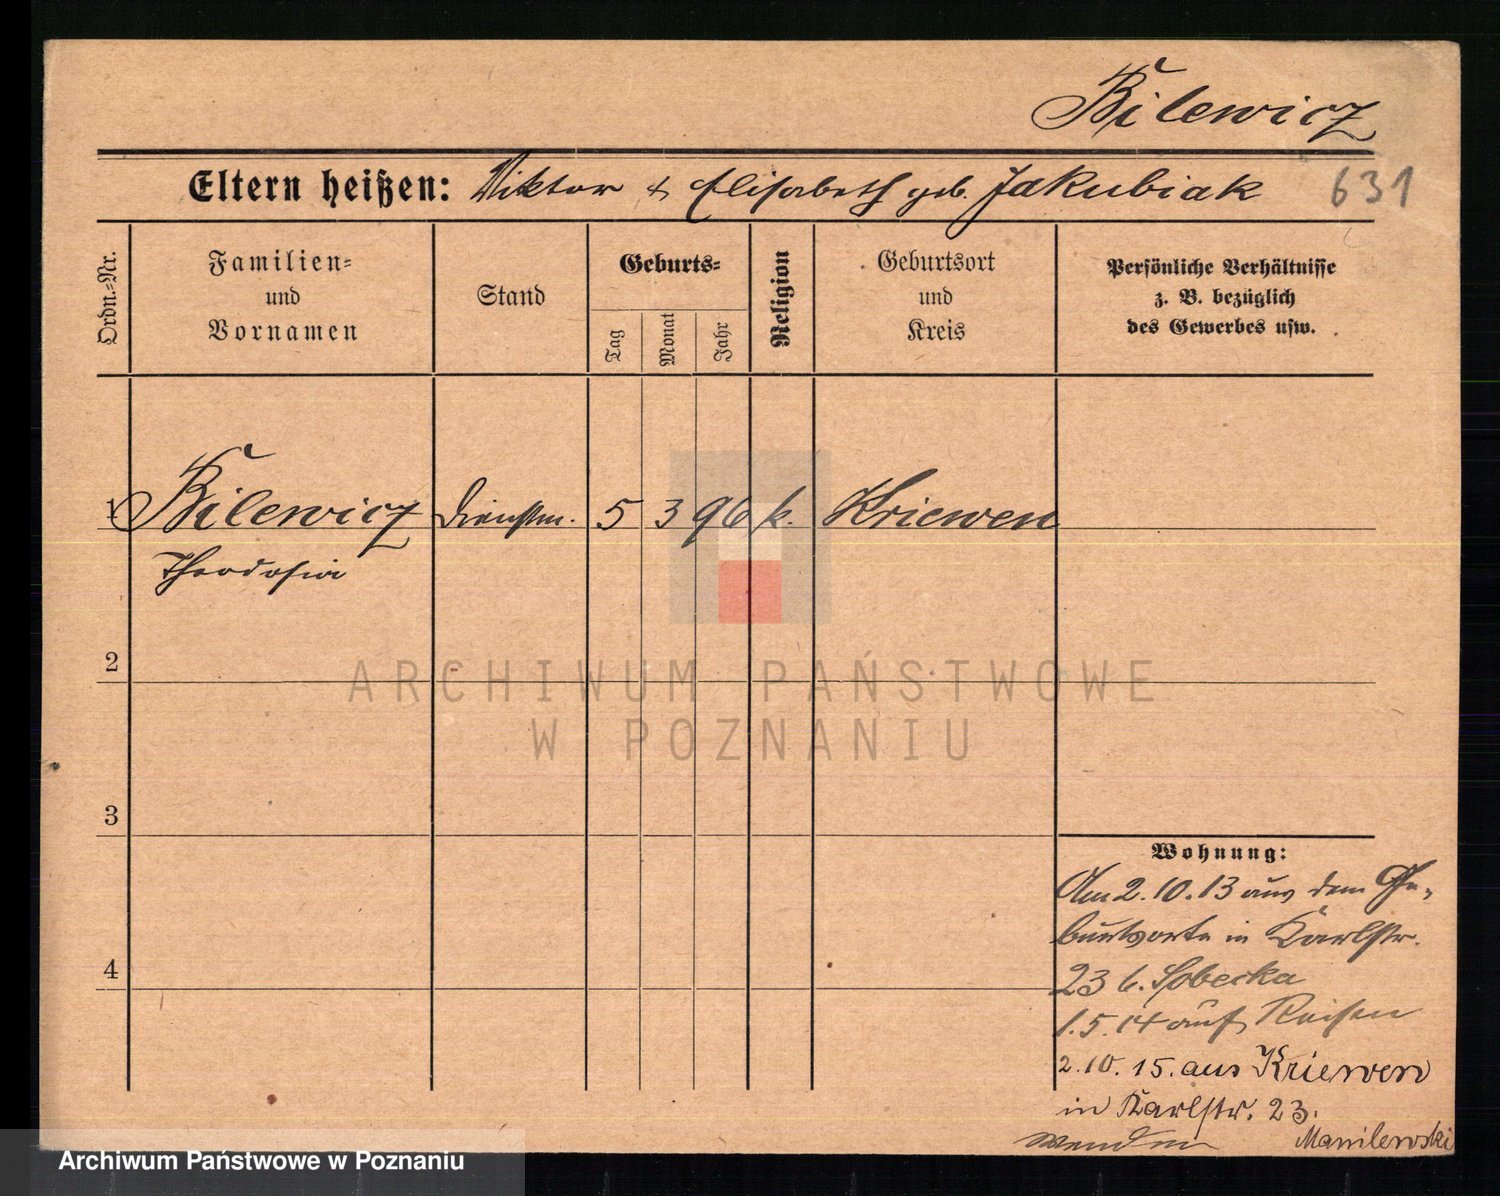 Bilewicz
Eltern heißen: Viktor & Elisabeth geb. Jakubiak 631
Ordn.-Nr.
Familien-
und
Vornamen
Stand
Geburts-
Tag
Monat
Jahr
Religion
Geburtsort
und
Kreis
Persönliche Verhältnisse
z. B. bezüglich
des Gewerbes usw.
1 Bilewicz Dienstm. 5 3 96 k. Kriewen
Theodosia
2
ARCHIWUM PAŃSTWOWE
W POZNANIU
3
Wohnung:
Am 2.10.13 aus dem Ge-
burtsorte in Karlstr.
4
23 b. Sobecka
1.5.14 auf Reisen
2.10.15. aus Kriewen
in Karlstr. 23.
wenden Manilewski
Archiwum Państwowe w Poznaniu